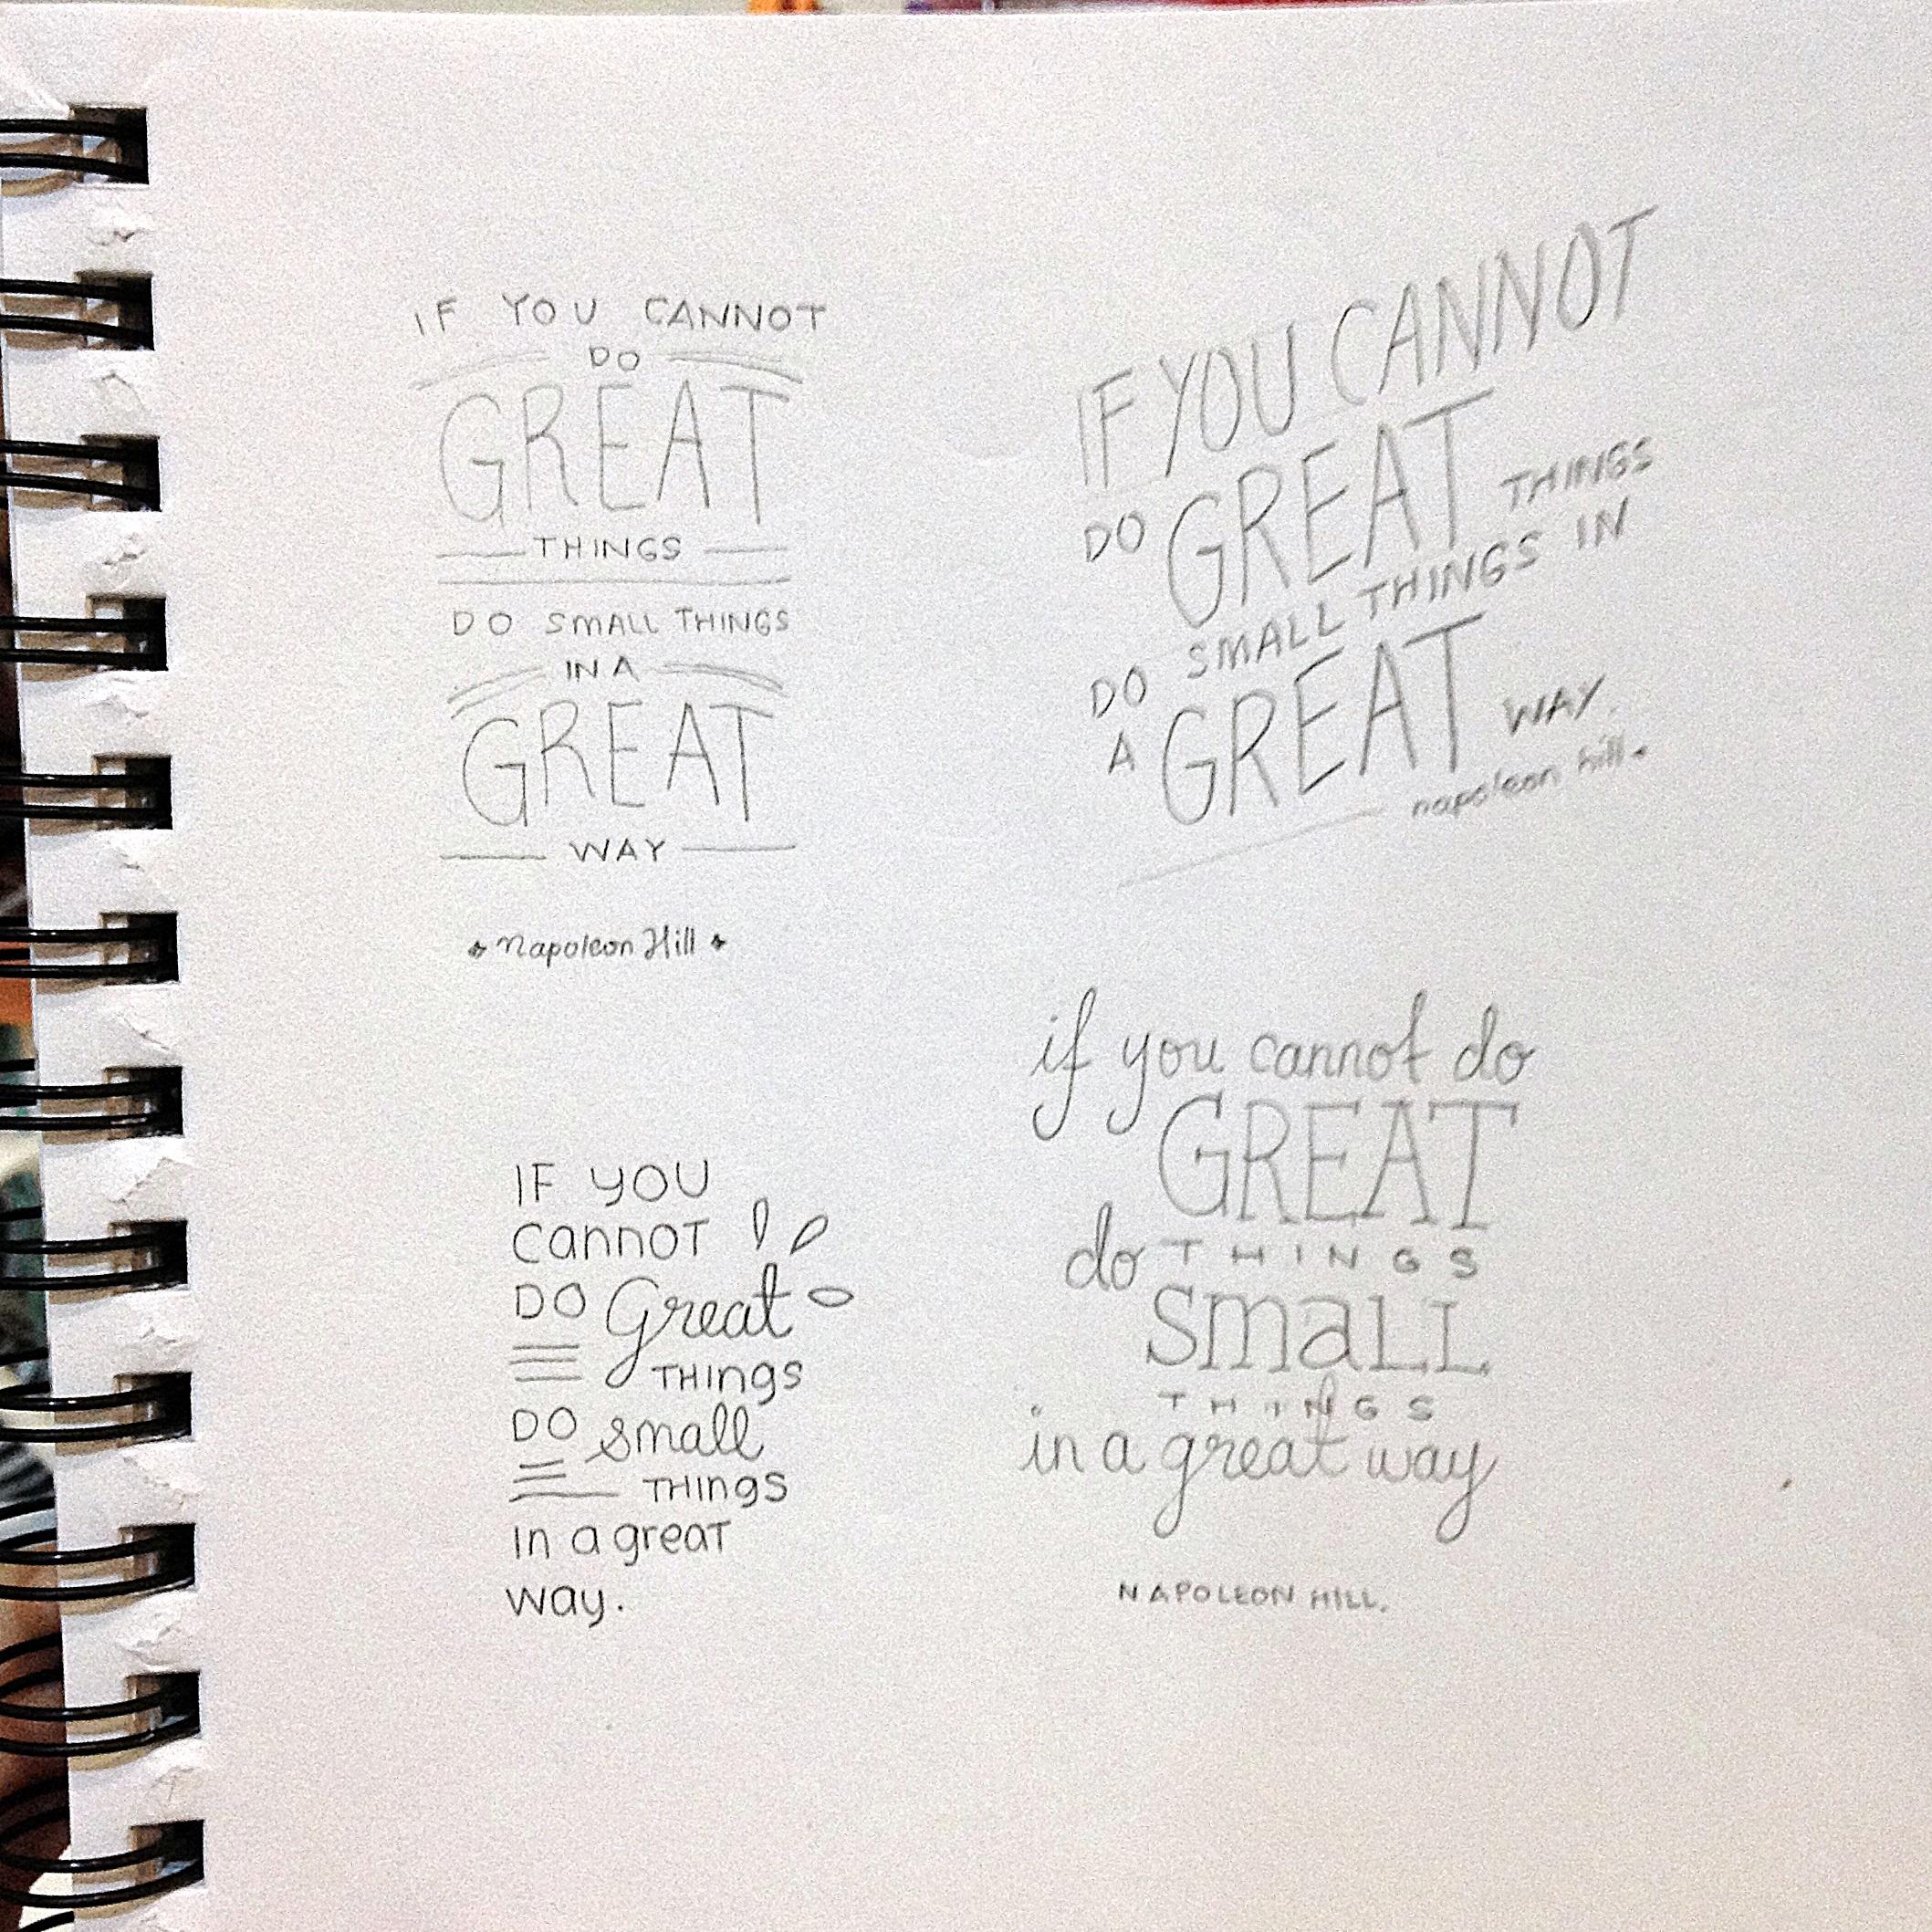 IF YOU CANNOT
DO
GREAT
THINGS
DO SMALL THINGS
IN A
GREAT
WAY
Napoleon Hill
IF YOU CANNOT
DO GREAT THINGS
DO SMALL THINGS IN
A GREAT WAY.
napoleon hill.
IF YOU
cannoT
DO Great
THings
DO small
THings
in a greaT
way.
if you cannot do
GREAT
do THINGS
SmaLL
THINGS
in a great way
NAPOLEON HILL.